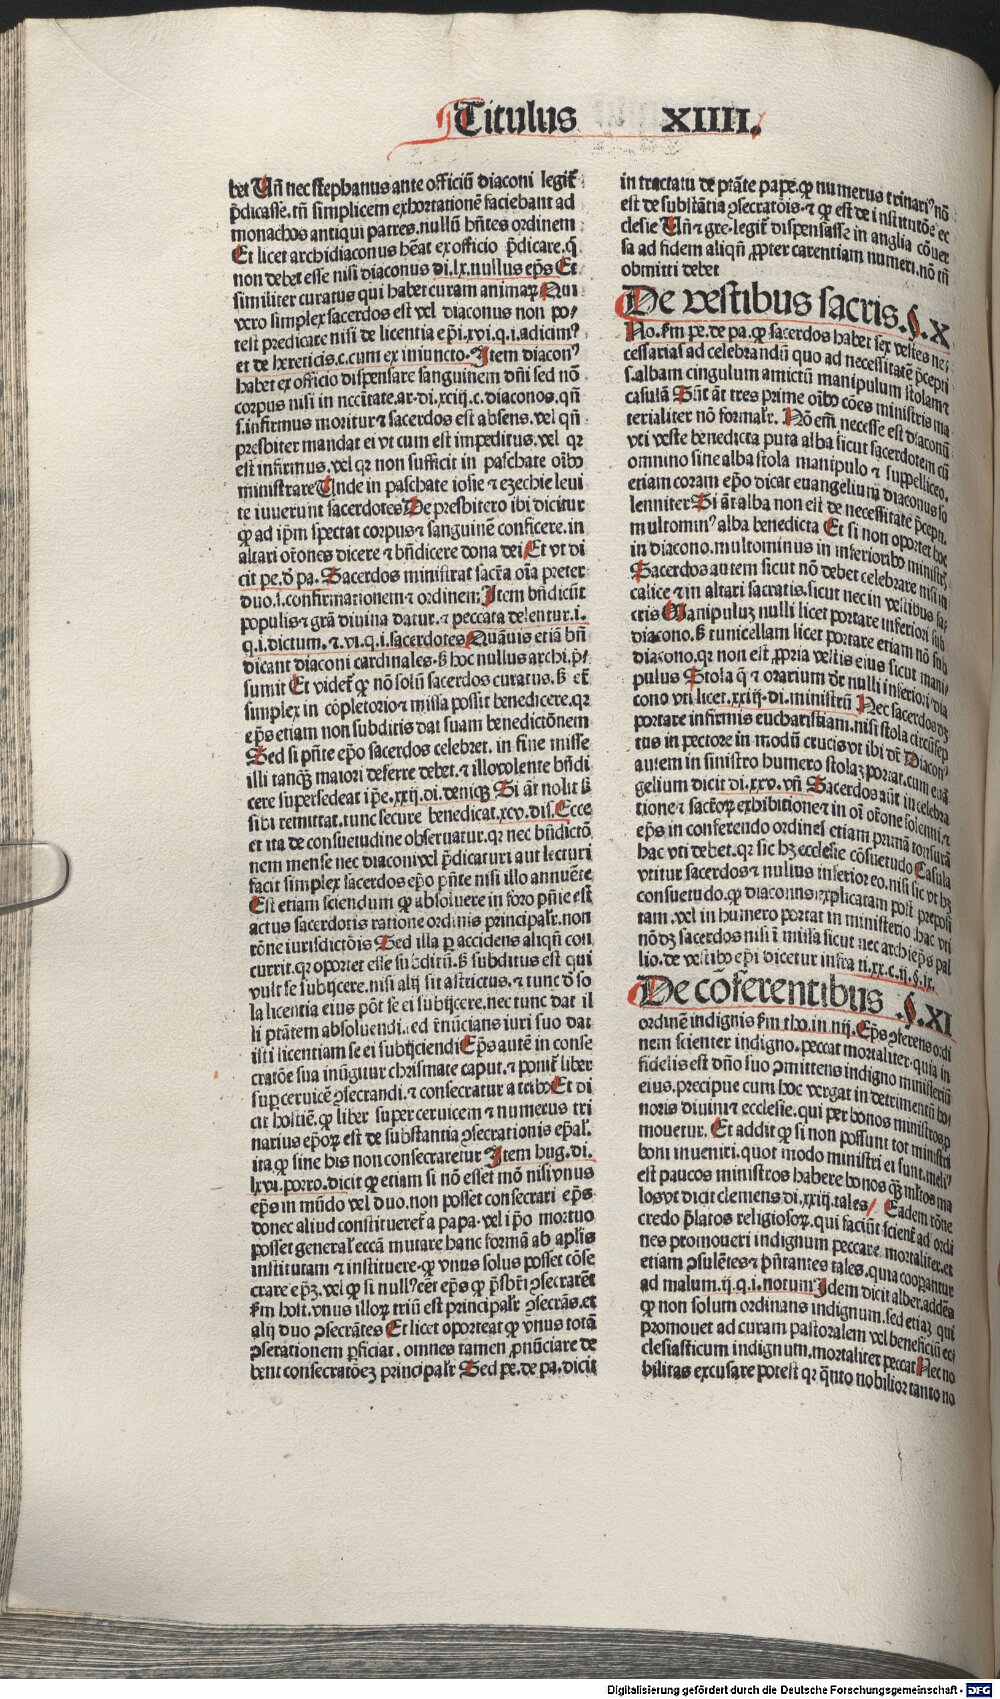 Titulus XIIII.
bet Uñ nec stephanus ante officiũ diaconi legit̃
p̃dicasse.tñ simplicem exhortationẽ faciebant ad
monachos antiqui patres.nullũ hñtes ordinem
Et licet archidiaconus hẽat ex officio p̃dicare.q̃
non debet esse nisi diaconus di.lx.nullus ep̃s Et
similiter curatus qui habet curam animaꝝ Qui
vero simplex sacerdos est vel diaconus non po⸗
test predicate nisi de licentia ep̃i.xvi.q.i.adicimꝰ
et de hereticis.c.cum ex iniuncto. Item diaconꝰ
habet ex officio dispensare sanguinem dñi sed nõ
corpus nisi in nccitate.ar.di.xciij.c.diaconos.qñ
s.infirmus moritur ⁊ sacerdos est absens.vel qñ
presbiter mandat ei vt cum est impeditus.vel qr
est infirmus.vel qr non sufficit in paschate oĩbꝰ
ministrare Unde in paschate iosie ⁊ ezechie leui
te iuuerunt sacerdotes De presbitero ibi dicitur
ꝙ ad ip̃m spectat corpus ⁊ sanguinẽ conficere.in
altari or̃ones dicere ⁊ bñdicere dona dei Et vt di
cit pe.d̃ pa. Sacerdos ministrat sacr̃a oĩa preter
duo.i.confirmationem ⁊ ordinem Item bñdicũt
populis ⁊ gr̃a diuina datur.⁊ peccata delentur.i.
q.i.dictum.⁊.vi.q.i.sacerdotes Quãuis etiã bñ
dicant diaconi cardinales.s̃ hoc nullus archi.p̃⸗
sumit Et videt̃ ꝙ nõ solũ sacerdos curatus.s̃ et̃
simplex in cõpletorio ⁊ missa possit benedicere.qr
ep̃s etiam non subditis dat suam benedictõnem
Sed si pñte ep̃o sacerdos celebret. in fine misse
illi tanq̃ʒ maiori deferre debet.⁊ illo volente bñdi
cere supersedeat ip̃e.xxij.di.deniqʒ Si ãt nolit s̃
sibi remittat.tunc secure benedicat.xcv.dis.Ecce
et ita de consuetudine obseruatur.qr nec bñdictõ
nem mense nec diaconi vel p̃dicaturi aut lecturi
facit simplex sacerdos ep̃o pñte nisi illo annuẽte
Est etiam sciendum ꝙ absoluere in foro pñie est
actus sacerdotis ratione ordinis principalr̃.non
rõne iurisdictõis Sed illa ꝑ accidens aliqñ con
currit.qr oportet esse subditũ.s̃ subditus est qui
vult se subijcere.nisi alij sit astrictus.⁊ tunc d̃ so
la licentia eius põt se ei subijcere.nec tunc dat il
li ptãtem absoluendi.sed r̃nũcians iuri suo dat
isti licentiam se ei subijciendi Ep̃s autẽ in conse
cratõe sua inũgitur chrismate caput.⁊ ponit̃ liber
suꝑ ceruicẽ ꝯsecrandi.⁊ consecratur a tribꝰ Et di
cit hostiẽ.ꝙ liber super ceruicem ⁊ numerus tri
narius ep̃oꝝ est de substantia ꝯsecrationis ep̃al.
ita ꝙ sine his non consecraretur Item hug.di.
lxvi.porro.dicit ꝙ etiam si nõ essent mõ nisi vnus
ep̃s in mũdo vel duo.non posset consecrari ep̃s.
donec aliud constitueret̃ a papa.vel ip̃o mortuo
posset general̃ eccã mutare hanc formã ab ap̃lis
institutam ⁊ instituere.ꝙ vnus solus posset cõse
crare ep̃ʒ.vel ꝙ si nullꝰ eẽt ep̃s ꝙ p̃sbr̃i ꝯsecrarẽt
s̃m host.vnus illoꝝ triũ est principalr̃ ꝯsecrãs.et
alij duo ꝯsecrãtes Et licet oporteat ꝙ vnus totã
ꝯsecrationem ꝑficiat. omnes tamen ꝓnũciare de
bent consecratõeʒ principalr̃ Sed pe.de pa.dicit
in tractatu de ptãte pape.ꝙ numerus trinariꝰ nõ
est de substãtia ꝯsecratõis.⁊ ꝙ est de institutõe ec
clesie Uñ ⁊ gre.legit̃ dispensasse in anglia cõuer
sa ad fidem aliqñ ꝓpter carentiam numeri.nõ tñ
obmitti debet
De vestibus sacris. §.X
No.s̃m pe.de pa.ꝙ sacerdos habet sex vestes ne⸗
cessarias ad celebrandũ quo ad necessitatẽ p̃cepti
s.albam cingulum amictũ manipulum stolam ⁊
casulã Sũt ãt tres prime oĩbꝰ cões ministris ma
terialiter nõ formalr̃. Nõ em̃ necesse est diaconũ
vti veste benedicta puta alba sicut sacerdotem cũ
omnino sine alba stola manipulo ⁊ suppelliceo.
etiam coram ep̃o dicat euangelium diaconus so
lenniter Si ãt alba non est de necessitate p̃cepti.
multominꝰ alba benedicta Et si non oportet hoc
in diacono.multominus in inferioribꝰ ministris
Sacerdos autem sicut nõ debet celebrare nisi in
calice ⁊ in altari sacratis.sicut nec in vestibus sa⸗
cris Manipulʒ nulli licet portare inferiori sub
diacono.s̃ tunicellam licet portare etiam nõ sub
diacono.qr non est ꝓpria vestis eius sicut mani⸗
pulus Stola q̃ ⁊ orarium dr̃ nulli inferiori dia
cono vti licet.xxiij.di.ministrũ Nec sacerdos dʒ
portare infirmis eucharistiam.nisi stola circũsep
tus in pectore in modũ crucis vt ibi dr̃ Diaconꝰ
autem in sinistro humero stolaʒ portat.cum euã
gelium dicit di.xxv.vñ Sacerdos aũt in celebra
tione ⁊ sacr̃oꝝ exhibitione ⁊ in oĩ or̃one solenni.⁊
ep̃s in conferendo ordines etiam primã tonsurã
hac vti debet.qr sic hʒ ecclesie cõsuetudo Casula
vtitur sacerdos ⁊ nullus inferior eo.nisi sic vt hʒ
consuetudo.ꝙ diaconus explicatam post preposi
tam.vel in humero portat in ministerio.hac vti
nõ dʒ sacerdos nisi ĩ missa sicut nec archiep̃s pal
lio.de vestibꝰ ep̃i dicetur infra ti.xx.c.ij.§.ix.
De cõferentibus .§.XI
ordinẽ indignis s̃m tho.in.iiij. Ep̃s ꝯferens ordi
nem scienter indigno.peccat mortaliter.quia in
fidelis est dño suo ꝯmittens indigno ministeriũ
eius.precipue cum hoc vergat in detrimentũ ho⸗
noris diuini ⁊ ecclesie.qui per bonos ministros ꝓ
mouetur. Et addit ꝙ si non possunt tot ministri
boni inueniri.quot modo ministri ei sunt.meliꝰ
est paucos ministros habere bonos q̃ʒ ml̃tos ma
los vt dicit clemens di.xxiij.tales Eadem rõne
credo p̃latos religiosoꝝ.qui faciũt scient̃ ad ordi
nes promoueri indignum peccare mortaliter.et
etiam ꝯsulẽtes ⁊ p̃ñtantes tales.quia cooꝑantur
ad malum.ij.q.i.notum Idem dicit alber.addẽs
ꝙ non solum ordinans indignum.sed etiaʒ qui
promouet ad curam pastoralem vel beneficiũ ec⸗
clesiasticum indignum.mortaliter peccat Nec no
bilitas excusare potest qr q̃nto nobilior tanto no
Digitalisierung gefördert durch die Deutsche Forschungsgemeinschaft - DFG